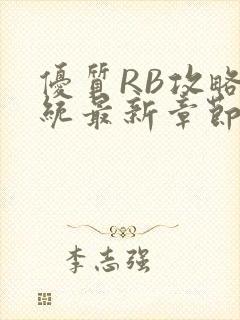 優質RB攻略
統最新章節
李志强